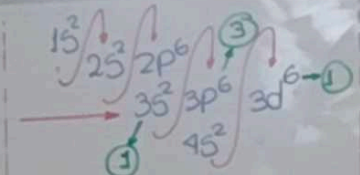 1s²
2s² 2p⁶ ③
3s² 3p⁶ 3d⁶ → ①
4s²
①